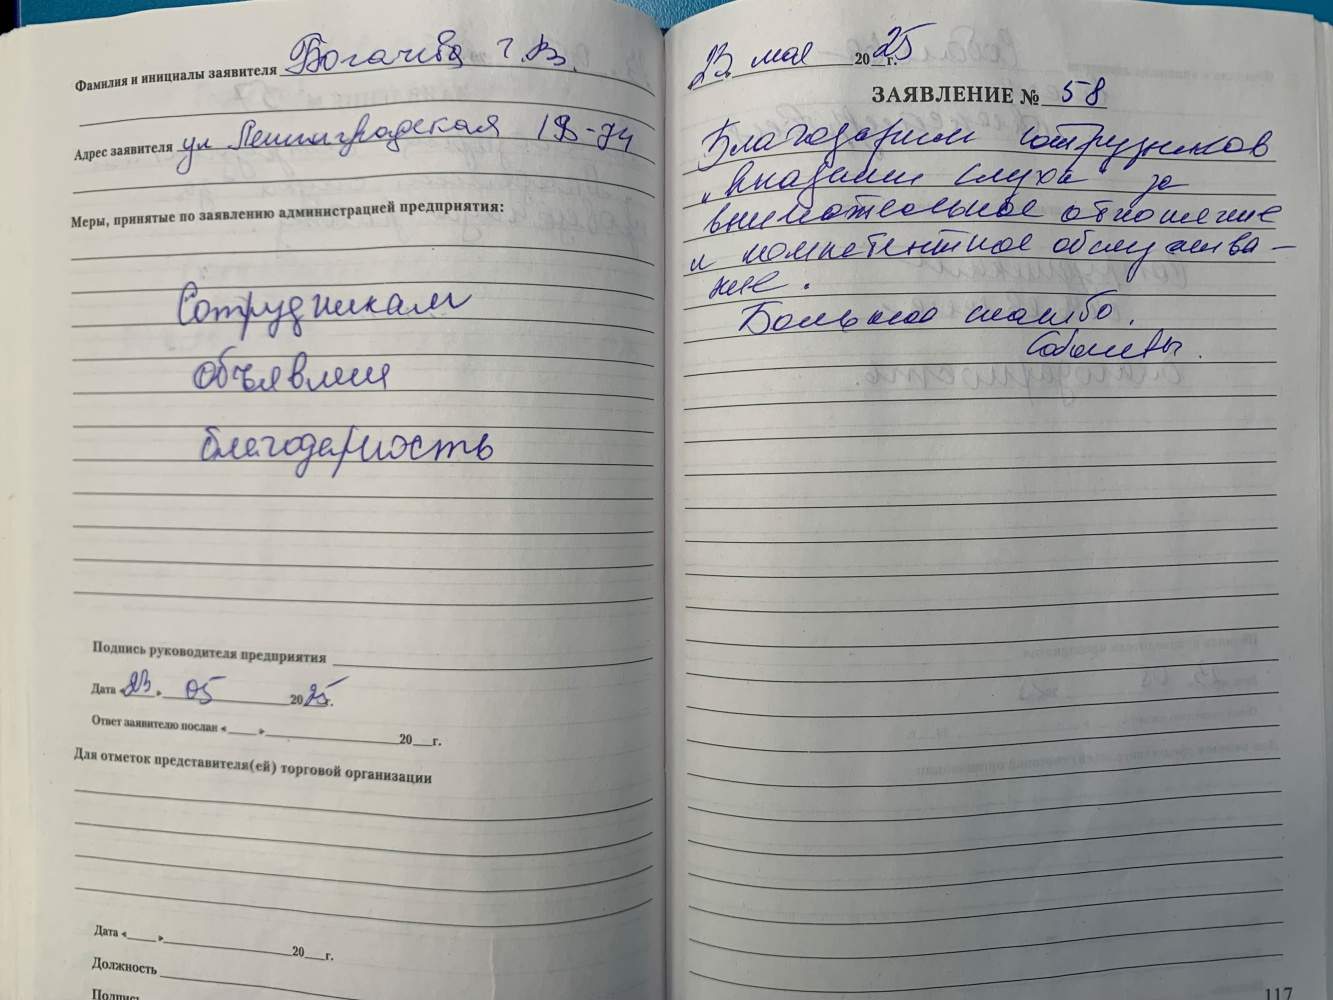 Фамилия и инициалы заявителя Богачева Г. В.
Адрес заявителя ул Ленинградская 1В-74
Меры, принятые по заявлению администрацией предприятия:
Сотрудникам
объявлена
благодарность
Подпись руководителя предприятия
Дата «23» 05 2025г.
Ответ заявителю послан «___» ___ 20__г.
Для отметок представителя(ей) торговой организации
Дата «___» ___ 20__г.
Должность
Подпись
23 мая 2025г.
ЗАЯВЛЕНИЕ № 58
Благодарим сотрудников
„Академии слуха за
внимательное отношение
и компетентное обслужива-
ние.
Большое спасибо.
117